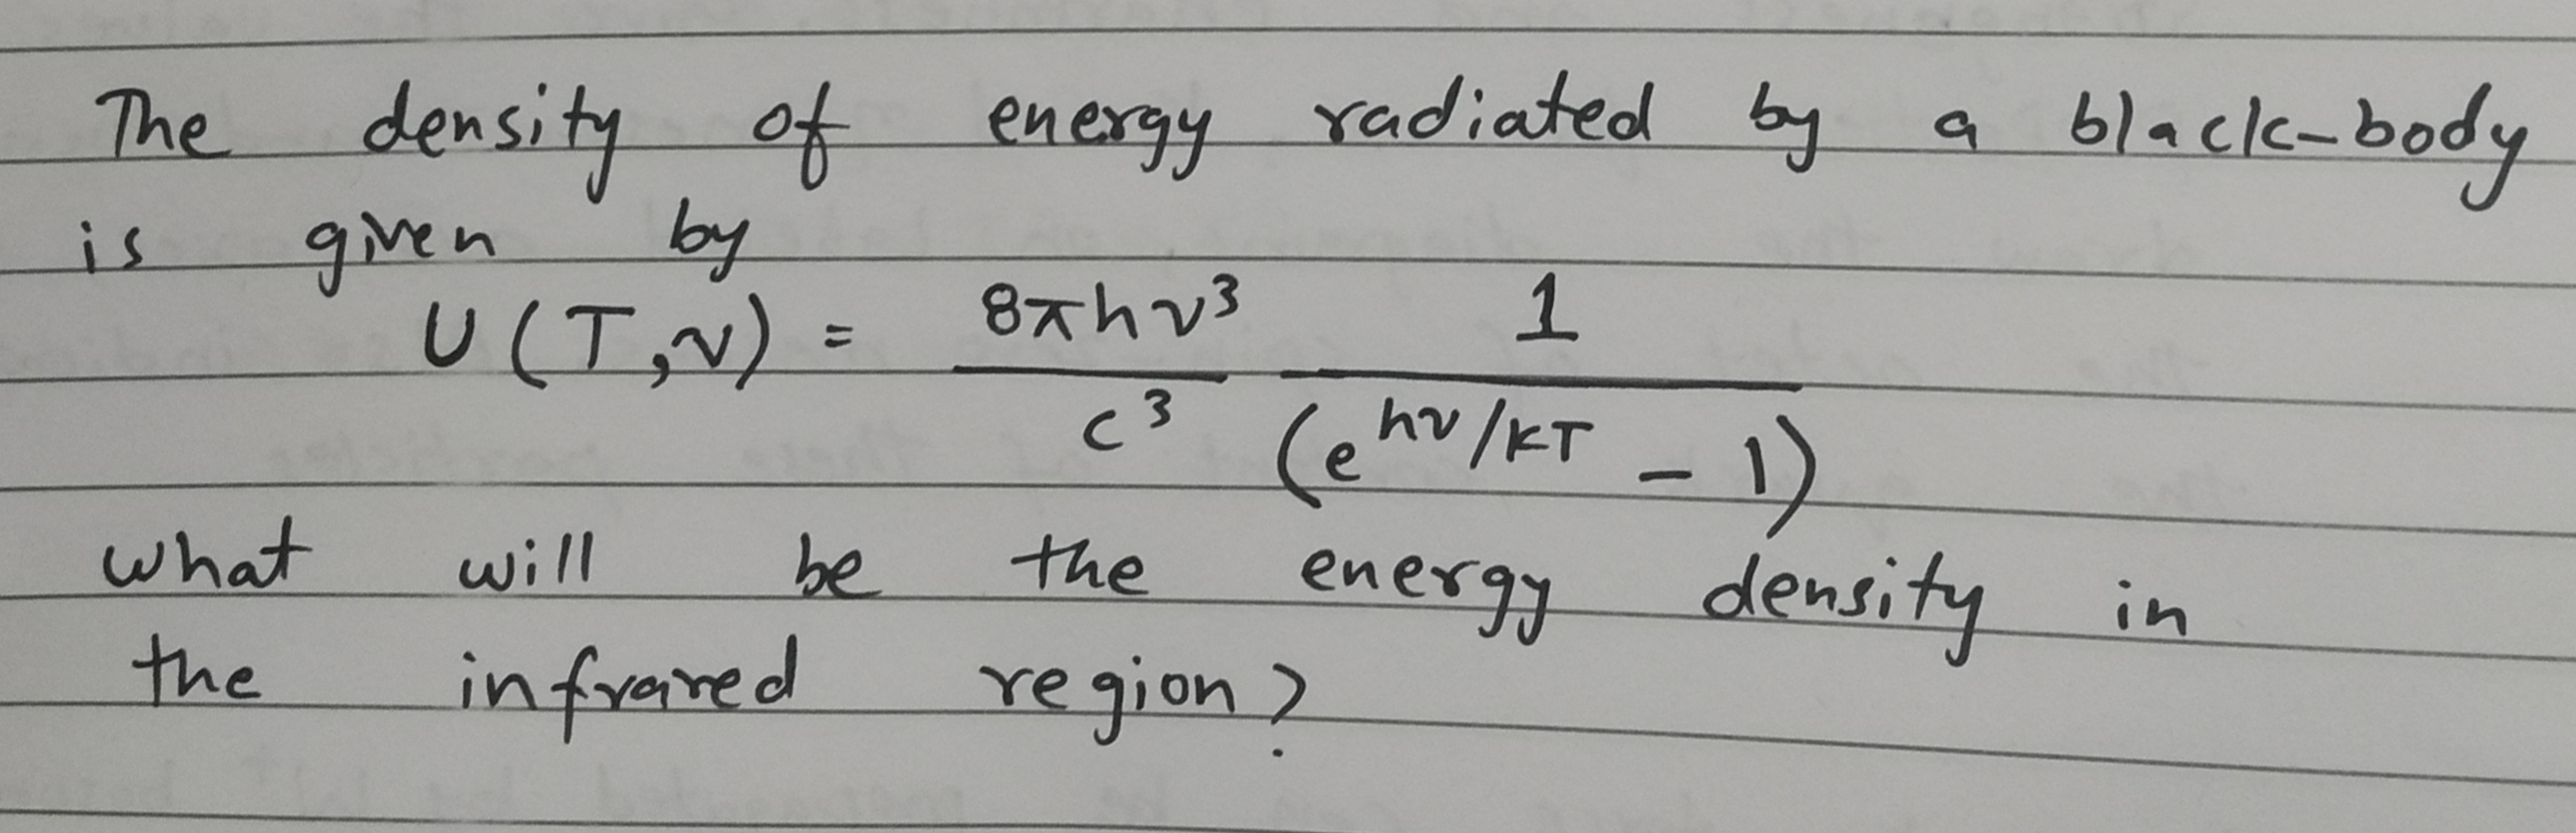 The density of energy radiated by a black-body
is given by
U(T,ν) = 8πhν³/c³ 1/(e^hν/KT - 1)
what will be the energy density in
the infrared region?